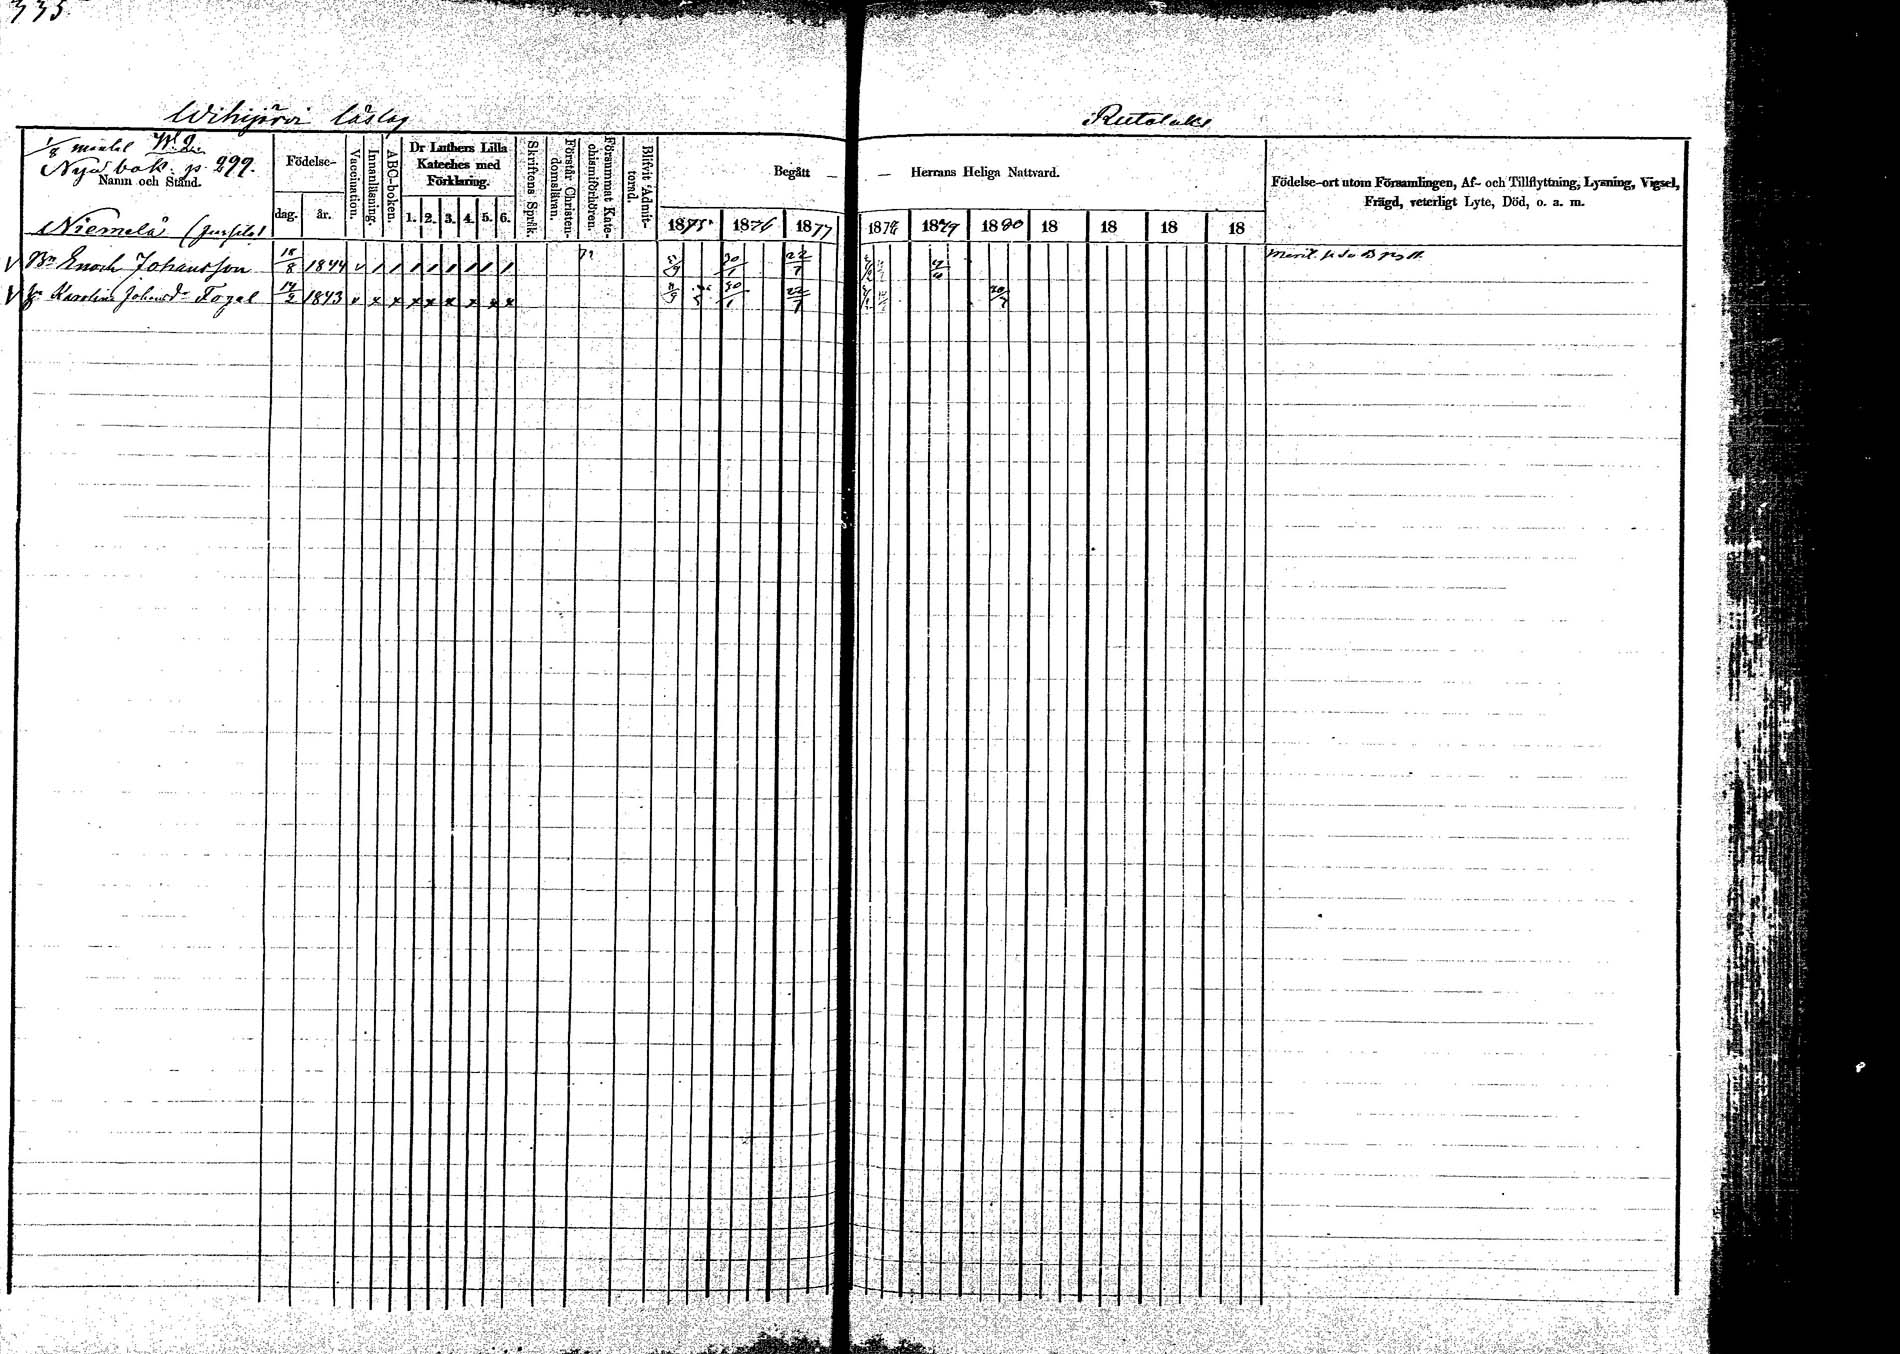 335.
Wihijärvi läslag
Rutalaks
1/8 mantal N:o 2.
Nya bok. p. 299.
Namn och Stånd.
Födelse-
dag. år.
Vaccination.
Innanläsning.
ABC-boken.
Dr Luthers Lilla
Kateches med
Förklaring.
1. 2. 3. 4. 5. 6.
Skriftens Språk.
Förstår Christen-
domsläran.
Försummat Kate-
chismiförhören.
Blifvit Admit-
terad.
Begått — — Herrans Heliga Nattvard.
1875 1876 1877 1878 1879 1880 18 18 18 18
Födelse-ort utom Församlingen, Af- och Tillflyttning, Lysning, Vigsel,
Frägd, veterligt Lyte, Död, o. a. m.
Niemelä
V Bn Enoch Johansson 18/8 1844 v / / / / / / / / 5/9 30/1 22/7
V Karolina Johansd:r Fogel 14/2 1843 v x x x x x x x x 5/9 30/1 22/7 30/7